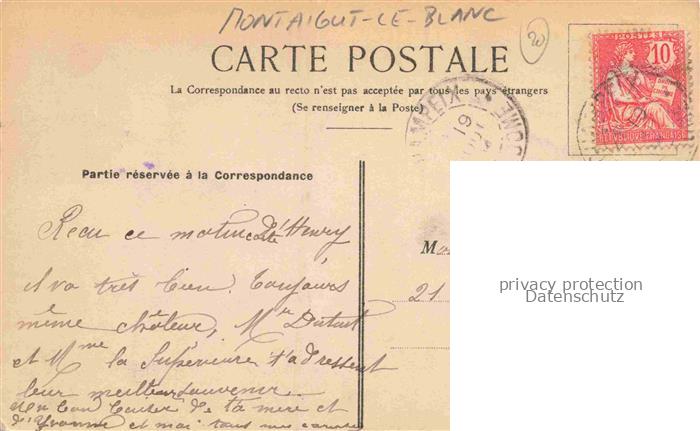 MONTAIGUT-LE-BLANC
20
CARTE POSTALE
La Correspondance au recto n'est pas acceptée par tous les pays étrangers
(Se renseigner à la Poste)
POSTES
10
RÉPUBLIQUE FRANÇAISE
CHAMPEIX
19
DOME
Partie réservée à la Correspondance
Recu ce matin carte d'Henry
il va très bien. Toujours
même chaleur, Mr Dutut
et Mme la Supérieure t'adressent
leur meilleur souvenir.
un bon baiser de ta mère et
d'Yvonne et moi tous mes
M
21
privacy protection
Datenschutz